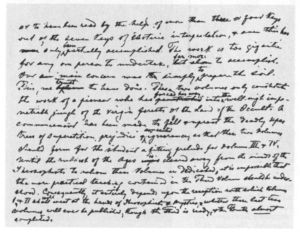 as to have been read by the help of more than three or four Keys
out of the seven Keys of Esoteric interpretation, and even this has
only been partially accomplished. The work is too gigantic
for any one person to undertake, far more to accomplish.
Our main concern was simply to prepare the soil.
This, we trust we have done. These two volumes only constitute
the work of a pioneer who has forced his way into the well-nigh impe-
netrable jungle of the virgin forests of the Land of the Occult. A
commencement has been made to fell & uproot the deadly upas
trees of superstition, prejudice & ignorance so that these two volumes
should form for the student a fitting prelude for Volumes III & IV.
Until the rubbish of the ages is cleared away from the minds of the
Theosophists to whom these Volumes are dedicated, it is impossible that
the more practical teaching contained in the Third Volume should be under-
stood. Consequently, it entirely depends upon the reception with which Volumes
I & II will meet at the hands of Theosophists & Mystics, whether these last two
Volumes will ever be published, though the Third is ready, & the Fourth almost
completed.